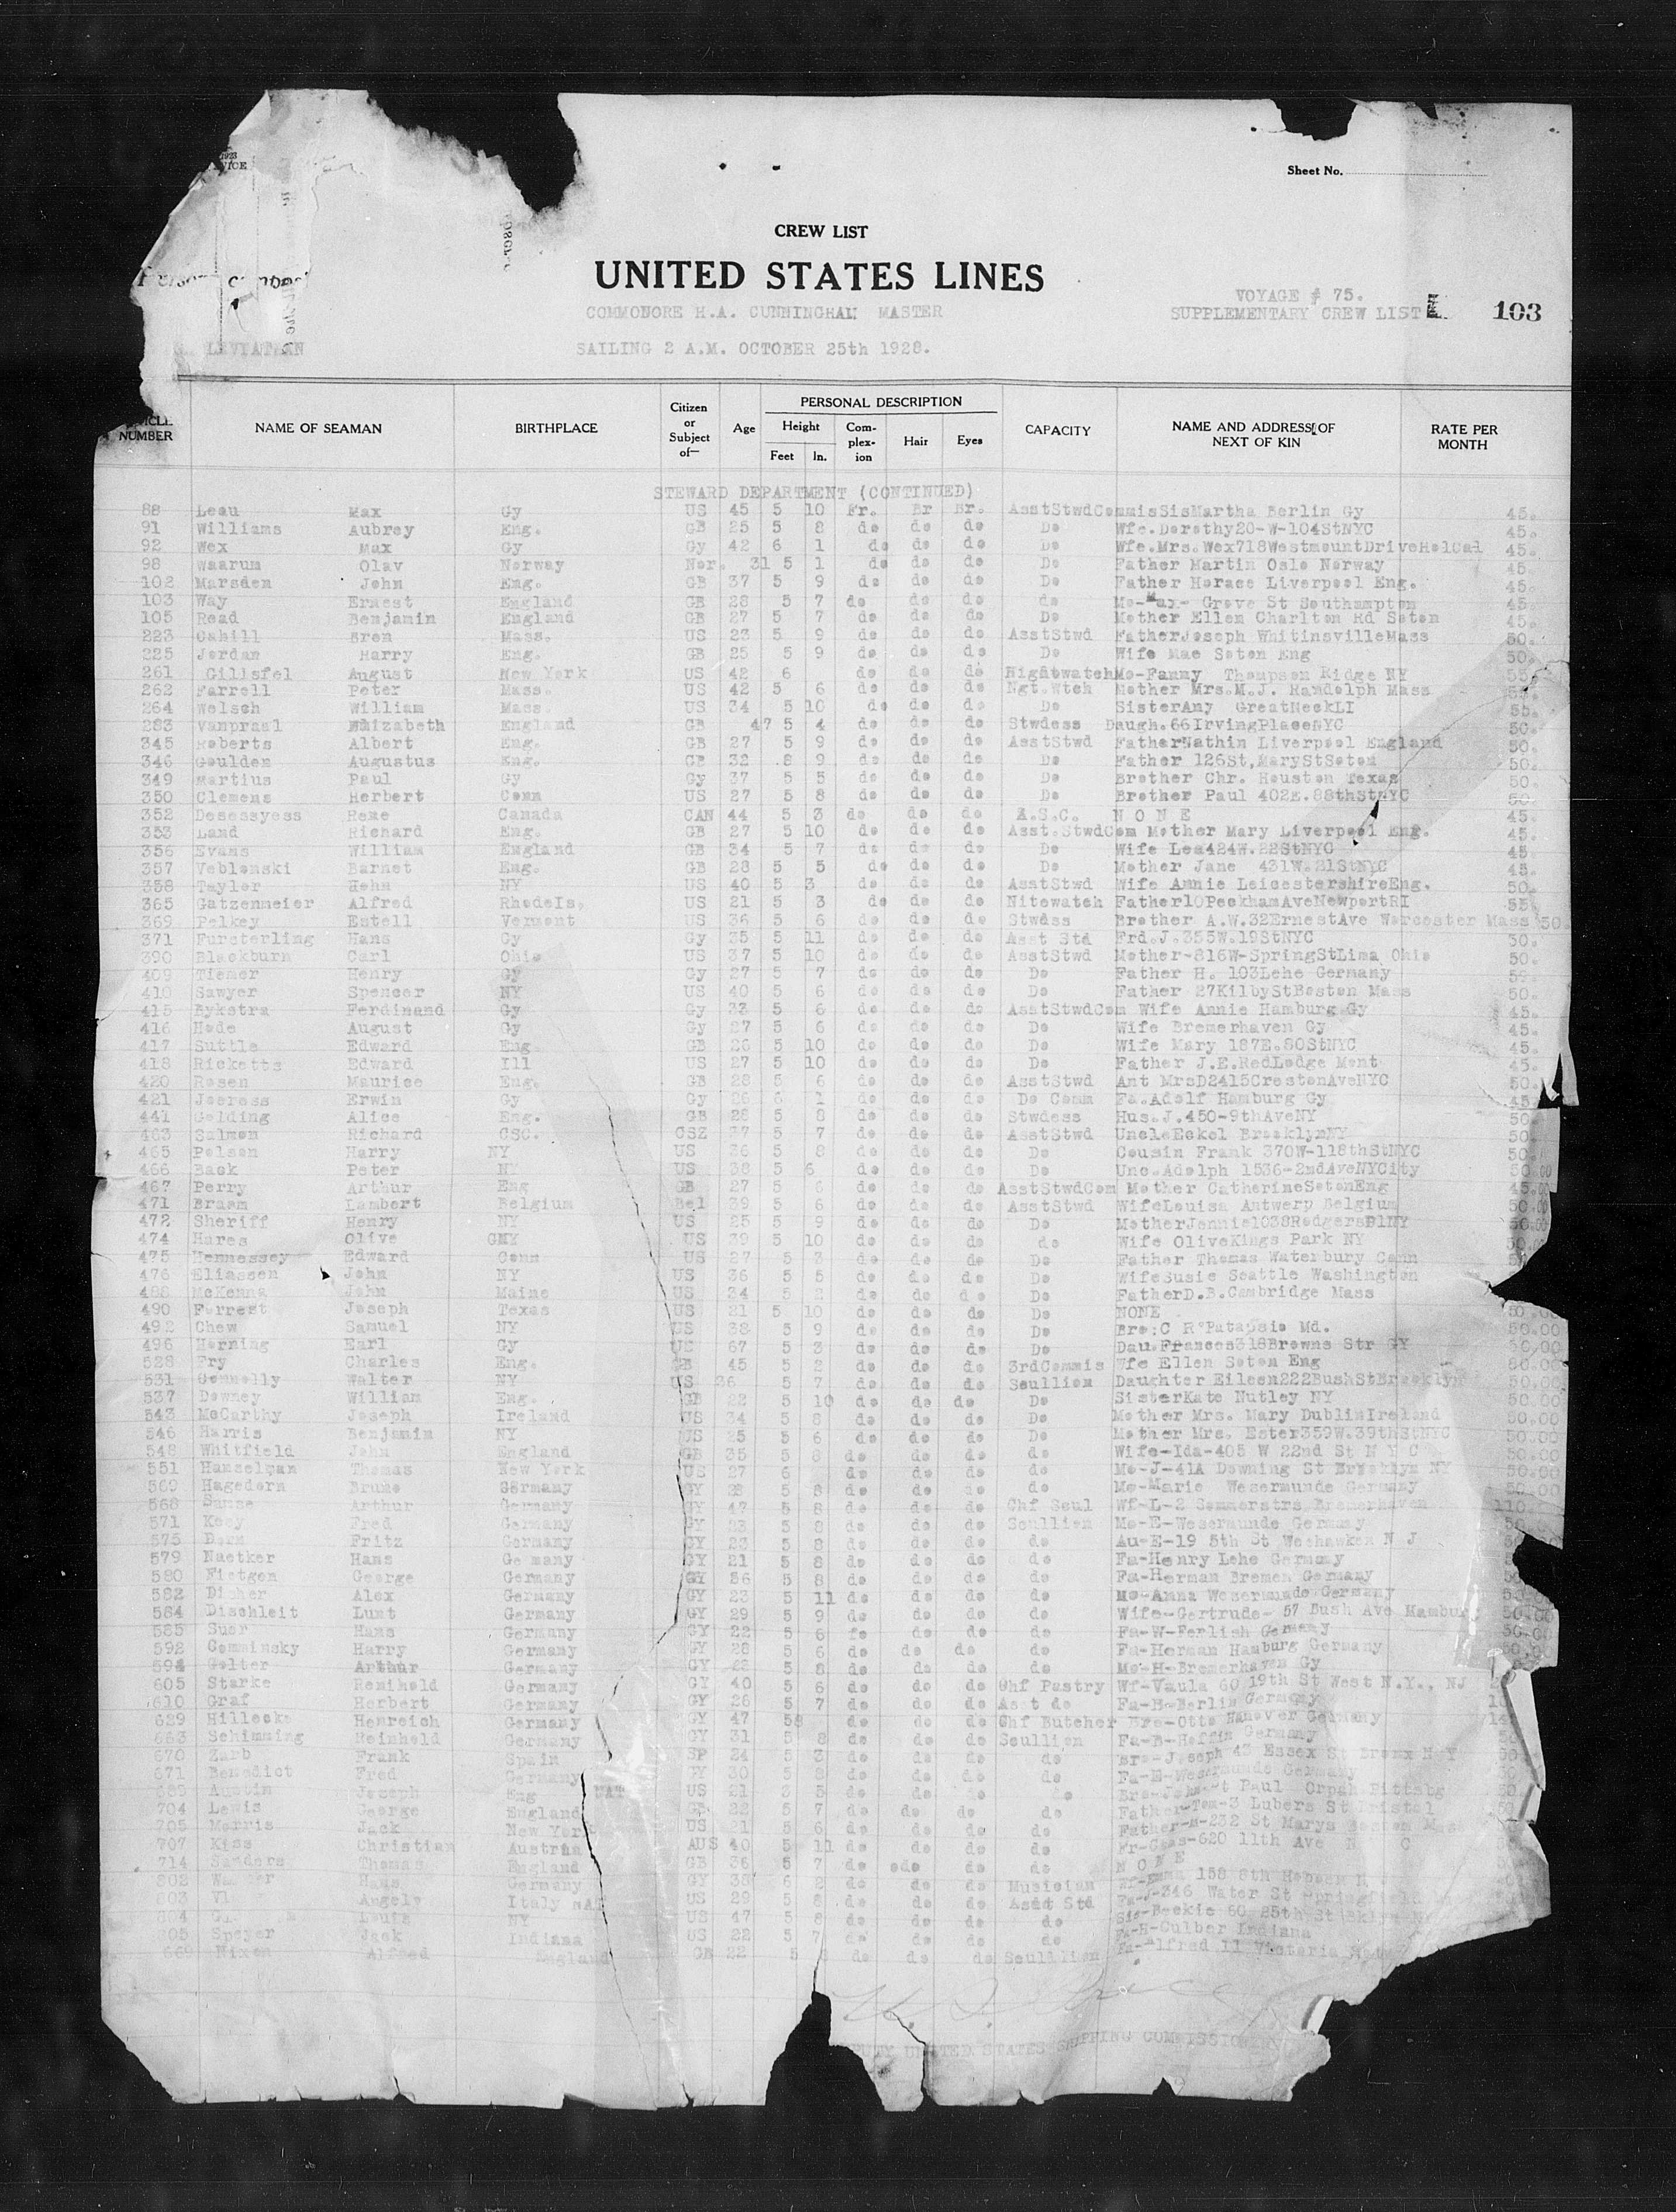 Sheet No.
CREW LIST
UNITED STATES LINES
COMMODORE H.A. CUNNINGHAM MASTER
VOYAGE # 75.
SUPPLEMENTARY CREW LIST 103
LEVIATHAN SAILING 2 A.M. OCTOBER 25th 1928.
NUMBER NAME OF SEAMAN BIRTHPLACE Citizen or Subject of— Age PERSONAL DESCRIPTION Height Feet In. Complexion Hair Eyes CAPACITY NAME AND ADDRESS OF NEXT OF KIN RATE PER MONTH
STEWARD DEPARTMENT (CONTINUED)
88 Leau Max Gy US 45 5 10 Fr. Br Br. AsstStwdCommisSisMartha Berlin Gy 45.
91 Williams Aubrey Eng. GB 25 5 8 do do do Do Wfe.Dorothy20-W-104StNYC 45.
92 Wex Max Gy Gy 42 6 1 do do do Do Wfe.Mrs.Wex718WestmountDriveHolCal 45.
98 Waarum Olav Norway Nor. 31 5 1 do do do Do Father Martin Oslo Norway 45.
102 Marsden John Eng. GB 37 5 9 do do do Do Father Horace Liverpool Eng. 45.
103 Way Ernest England GB 28 5 7 do do do do Mo-Max- Grove St Southampton 45.
105 Read Benjamin England GB 27 5 7 do do do Do Mother Ellen Charlton Rd Soton 45.
223 Cahill Bren Mass. US 23 5 9 do do do AsstStwd FatherJoseph WhitinsvilleMass 50.
225 Jordan Harry Eng. GB 25 5 9 do do do Do Wife Mae Soton Eng 50.
261 Gillsfel August New York US 42 6 do do do NightwatchMo-Fanny Thompson Ridge NY 55.
262 Farrell Peter Mass. US 42 5 6 do do do Ngt.Wtch Mother Mrs.M.J. Randolph Mass 55.
264 Welsch William Mass. US 34 5 10 do do do Do SisterAny GreatNeckLI 55.
283 Vanpraal Elizabeth England GB 47 5 4 do do do Stwdess Daugh.66IrvingPlaceNYC 50.
345 Roberts Albert Eng. GB 27 5 9 do do do AsstStwd FatherNathin Liverpool England 50.
346 Goulden Augustus Eng. GB 32 8 9 do do do Do Father 126St,MaryStSoton 50.
349 Martius Paul Gy Gy 37 5 5 do do do Do Brother Chr. Houston Texas 50.
350 Clemens Herbert Conn US 27 5 8 do do do Do Brother Paul 402E.88thStNYC 50
352 Desessyess Rene Canada CAN 44 5 3 do do do A.S.C. N O N E 45.
353 Land Richard Eng. GB 27 5 10 do do do Asst.StwdCom Mother Mary Liverpool Eng. 45.
356 Evans William England GB 34 5 7 do do do Do Wife Lea424W.22StNYC 45
357 Veblenski Barnet Eng. GB 28 5 5 do do do Do Mother Jane 431W.21StNYC 45.
358 Taylor Hohn NY US 40 5 3 do do do AsstStwd Wife Annie LeicestershireEng. 50.
365 Gatzenmeier Alfred RhodeIs, US 21 5 3 do do do Nitewatch Father10PeckhamAveNewportRI 55.
369 Pelkey Estell Vermont US 36 5 6 do do do Stwdss Brother A.W.32ErnestAve Worcester Mass 50.
371 Fursterling Hans Gy Gy 35 5 11 do do do Asst Std Frd.J.355W.19StNYC 50.
390 Blackburn Carl Ohio US 37 5 10 do do do AsstStwd Mother-816W-SpringStLima Ohio 50.
409 Tiemer Henry Gy Gy 27 5 7 do do do Do Father H. 103Lehe Germany 50.
410 Sawyer Spencer NY US 40 5 6 do do do Do Father 27KilbyStBoston Mass 50.
415 Bykstra Ferdinand Gy Gy 33 5 6 do do do AsstStwdCom Wife Annie Hamburg Gy 45.
416 Hode August Gy Gy 27 5 6 do do do Do Wife Bremerhaven Gy 45.
417 Suttle Edward Eng GB 26 5 10 do do do Do Wife Mary 187E.80StNYC 45.
418 Ricketts Edward Ill US 27 5 10 do do do Do Father J.E.RedLodge Mont 45.
420 Rosen Maurice Eng. GB 28 5 6 do do do AsstStwd Ant MrsD2415CrestonAveNYC 50.
421 Joeress Erwin Gy Gy 26 6 1 do do do Do Comm Fa.Adolf Hamburg Gy 45.
441 Golding Alice Eng. GB 28 5 8 do do do Stwdess Hus.J.450-9thAveNY 50
463 Salmon Richard CSC. CSZ 37 5 7 do do do AsstStwd UncleEckel BrooklynNY 50.
465 Polson Harry NY US 36 5 8 do do do Do Cousin Frank 370W-118thStNYC 50.
466 Back Peter NY US 38 5 6 do do do Do Unc.Adolph 1536-2ndAveNYCity 50.00
467 Perry Arthur Eng GB 27 5 6 do do do AsstStwdCom Mother CatherineSotonEng 45.00
471 Braem Lambert Belgium Bel 39 5 6 do do do AsstStwd WifeLouisa Antwerp Belgium 50.00
472 Sheriff Henry NY US 25 5 9 do do do Do MotherJennie1038RodgersPlNY 50.00
474 Hares Olive GNY US 39 5 10 do do do do Wife OliveKings Park NY 50.00
475 Hennessey Edward Conn US 27 5 3 do do do Do Father Thomas Waterbury Conn
476 Eliassen John NY US 36 5 5 do do do Do WifeSusie Seattle Washington
488 McKenna John Maine US 34 5 2 do do do Do FatherD.B.Cambridge Mass
490 Forrest Joseph Texas US 21 5 10 do do do Do NONE 50.00
492 Chew Samuel NY US 38 5 9 do do do Do Bro:C R Patapsio Md. 50.00
496 Horning Earl Gy US 67 5 3 do do do Do Dau.Frances318Browns Str GY 50.00
528 Fry Charles Eng. GB 45 5 2 do do do 3rdCommis Wfe Ellen Soton Eng 80.00
531 Connolly Walter NY US 36 5 7 do do do Scullion Daughter Eileen222BushStBrooklyn 50.00
537 Downey William Eng. GB 22 5 10 do do do Do SisterKate Nutley NY 50.00
543 McCarthy Joseph Ireland US 34 5 8 do do do Do Mother Mrs. Mary DublinIreland 50.00
546 Harris Benjamin NY US 25 5 6 do do do Do Mother Mrs. Ester359W.39thStNYC 50.00
548 Whitfield John England GB 35 5 8 do do do do Wife-Ida-405 W 22nd St N Y C 50.00
551 Hanzelman Thomas New York US 27 6 do do do do Mo-J-41A Downing St Brooklyn NY 50.00
569 Hagedorn Bruno Germany GY 5 8 do do do do Mo-Marie Wesermunde Germany 50.00
568 Sanse Arthur Germany GY 47 5 8 do do do Chf Scul Wf-L-2 Sommerstrs Bremerhaven 110.
571 Kooy Fred Germany GY 23 5 8 do do do Scullion Mo-E-Wesermunde Germany 50
575 Dorn Fritz Germany GY 23 5 8 do do do do Au-E-19 5th St Weehawken N J
579 Naetker Hans Ge many GY 21 5 8 do do do do Fa-Henry Lehe Germany
580 Fietgen George Germany GY 36 5 8 do do do do Fa-Herman Bremen Germany
582 Dicher Alex Germany GY 23 5 11 do do do do Mo-Anna Wesermunde Germany 50.00
584 Dischleit Lunt Germany GY 29 5 9 do do do do Wife-Gertrude- 57 Bush Ave Mambur 50.00
585 Suer Hans Germany GY 22 5 6 fo do do do Fa-W-Ferlish Germany 50.00
592 Comminsky Harry Germany GY 28 5 6 do do do do Fa-Herman Hamburg Germany
594 Golter Arthur Germany GY 5 8 do do do do Mo-H-Bremerhaven Gy
605 Starke Reinhold Germany GY 40 5 6 do do do Chf Pastry Wf-Vaula 60 19th St West N.Y., NJ
610 Graf Herbert Germany GY 28 5 7 do do do Asst do Fa-B-Berlin Germany
629 Hillecke Henreich Germany GY 47 58 do do do Chf Butcher Bro-Otto Hanover Germany
663 Schimming Reinhold Germany GY 31 5 8 do do do Scullion Fa-B-Hoffin Germany
670 Zarb Frank Spain SP 24 5 3 do do do do Bro-Joseph 43 Essex St Bronx N Y
671 Benedict Fred Germany GY 30 5 8 do do do do Fa-E-Wesermunde Germany
Austin Joseph Eng NAT US 21 do do do do Paul Orpah Pittsbg
704 Lewis George England GB 22 5 7 do do do do Father-Tom-3 Lubers St Bristol
705 Morris Jack New York US 21 5 6 do do do do Father-M-232 St Marys Boston
707 Kiss Christian Austria AUS 40 5 11 do do do do 620 11th Ave N C
714 Sanders Thomas England GB 36 5 7 do do do N O N E
802 Hans Germany GY 38 6 2 do do do Musician Wf-Emma 158 8th Hoboken
803 Angelo Italy NAT US 29 5 8 do do do Asst Std 346 Water St Springfield
804 Louis NY US 47 5 8 do do do do Sis-Beckie 60 25th St Bklyn
805 Speyer Jack Indiana US 22 5 7 do do do do Fa-H-Culber Indiana
669 Nixon Alfred England GB 22 5 do do do Scullion Fa-Alfred 11 Victoria
UNITED STATES SHIPPING COMMISSIONER